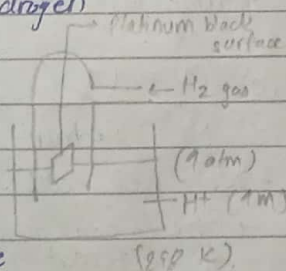 drogen
Platinum black
surface
H2 gas
(1 atm)
H+ (1M)